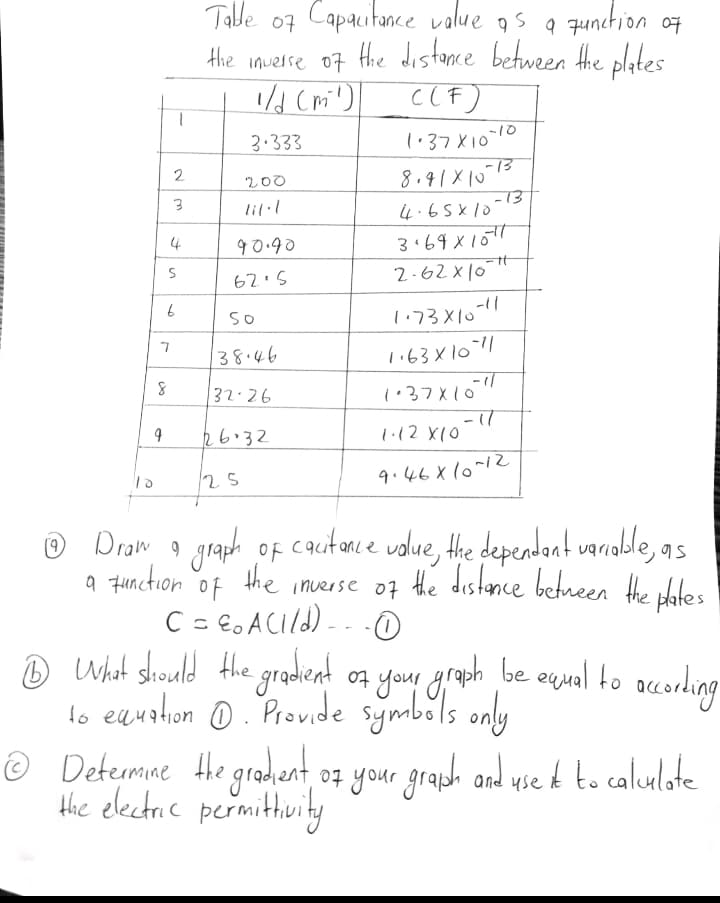 Table of Capacitance value as a function of
the inverse of the distance between the plates
1/d (m⁻¹) C(F)
1 3.333 1.37 X 10⁻¹⁰
2 200 8.91 X 10⁻¹³
3 111.1 4.65 x 10⁻¹³
4 90.90 3.69 X 10⁻¹¹
5 62.5 2.62 X 10⁻¹¹
6 50 1.73 X 10⁻¹¹
7 38.46 1.63 X 10⁻¹¹
8 32.26 1.37 X 10⁻¹¹
9 26.32 1.12 X 10⁻¹¹
10 25 9.46 X 10⁻¹²
(a) Draw a graph of cacitance value, the dependant variable, as
a function of the inverse of the distance between the plates
C = ε₀A(1/d) --- ①
(b) What should the gradient of your graph be equal to according
to equation ①. Provide symbols only
(c) Determine the gradient of your graph and use it to calculate
the electric permittivity